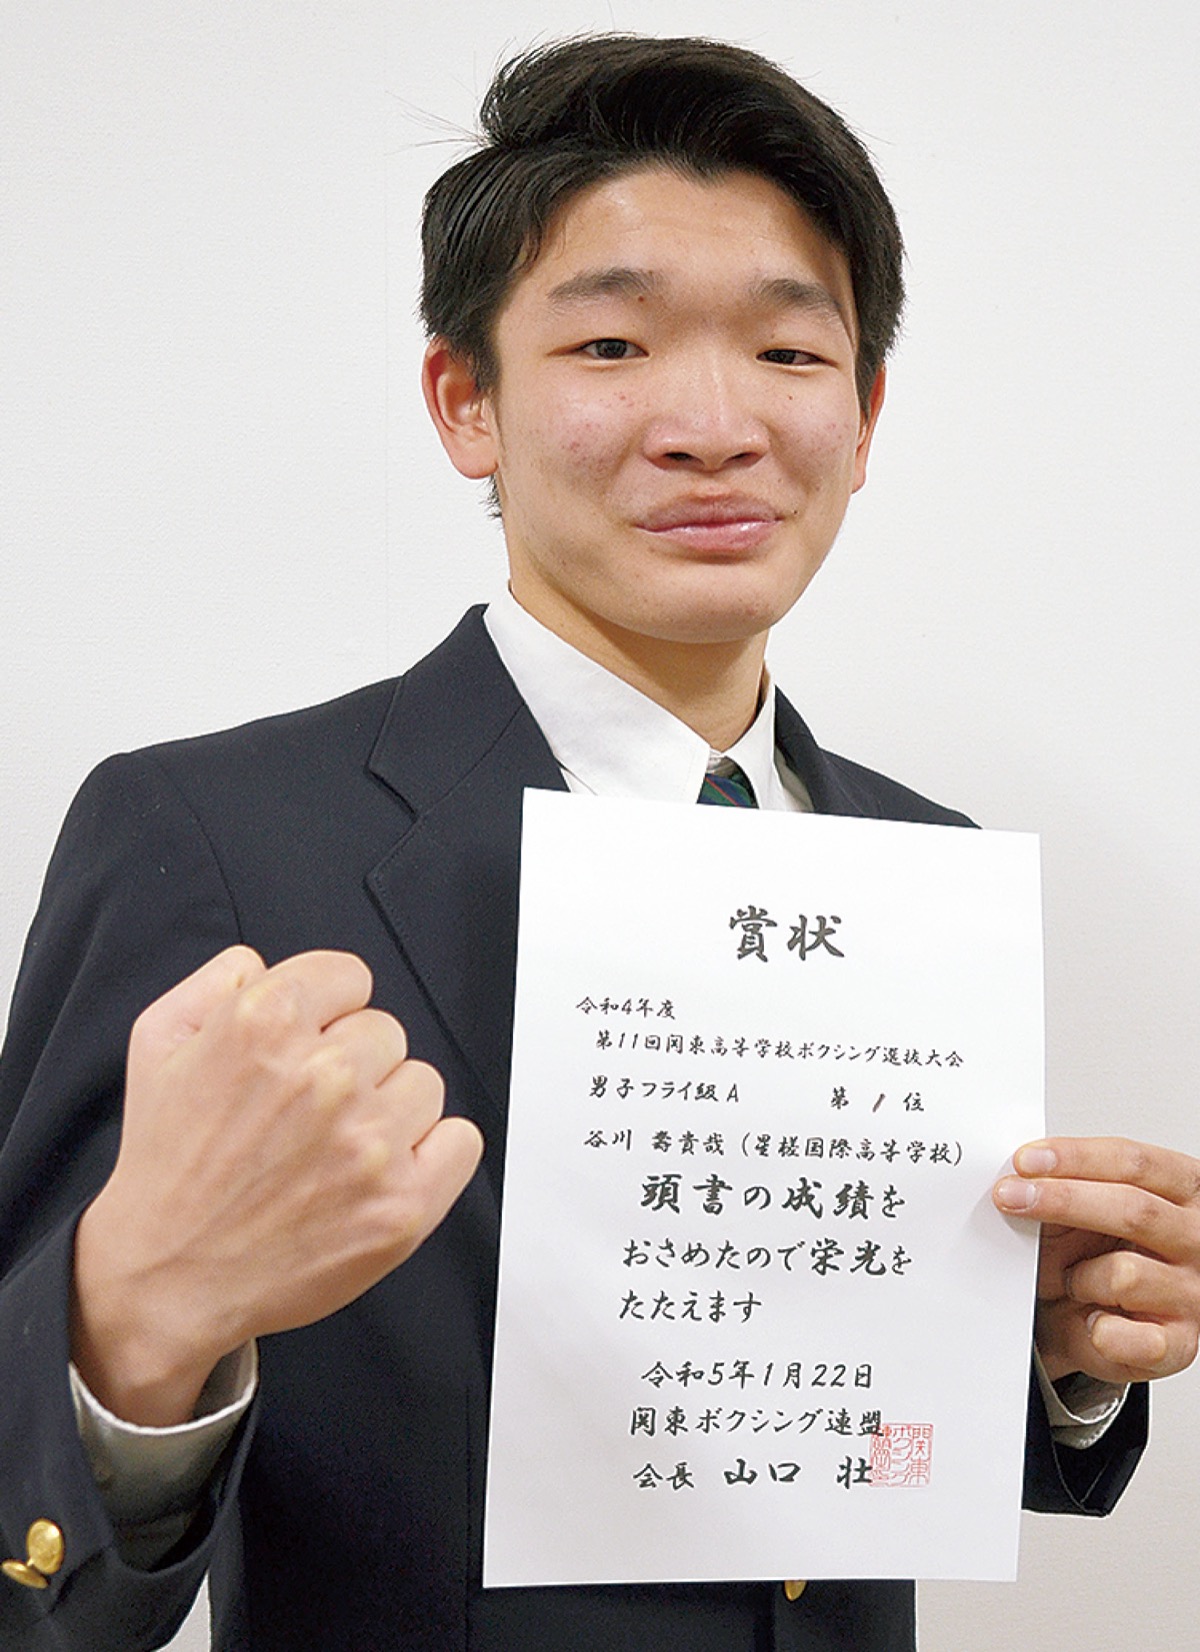 賞状
令和4年度
第11回関東高等学校ボクシング選抜大会
男子フライ級A 第1位
谷川 壽貴哉(星槎国際高等学校)
頭書の成績を
おさめたので栄光を
たたえます
令和5年1月22日
関東ボクシング連盟
会長 山口 壮